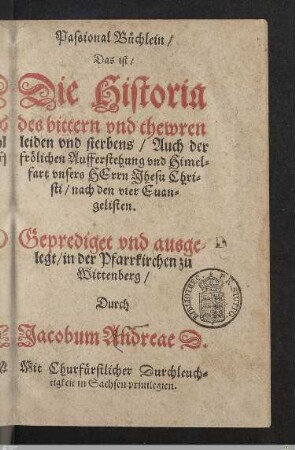 Passional Büchlein /
Das ist /
Die Historia
des bittern vnd thewren
leiden vnd sterbens / Auch der
frölichen Aufferstehung vnd Himel-
fart vnsers HErrn Jhesu Chri-
sti / nach den vier Euan-
gelisten.
Geprediget vnd ausge-
legt / in der Pfarrkirchen zu
Wittenberg /
Durch
Jacobum Andreae D.
Mit Churfürstlicher Durchleuch-
tigkeit in Sachsen priuilegien.